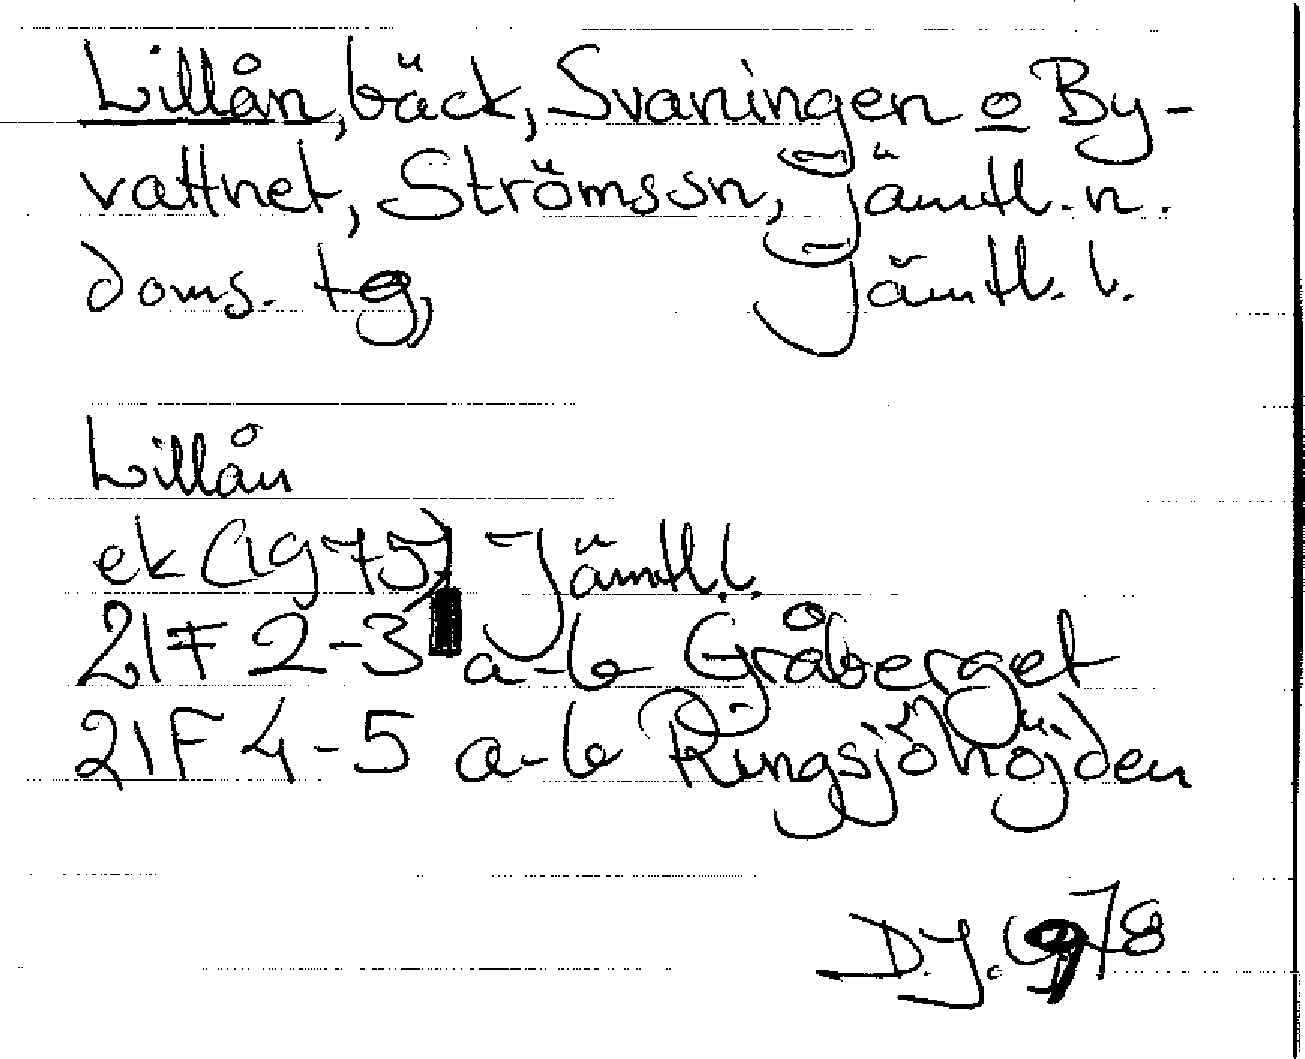 Lillån, bäck, Svaningen o By-
vattnet, Strömssn, Jämtl. n.
doms. tg, Jämtl. l.
Lillån
ek (1975) Jämtl. l.
21F 2-3 a-b Gråberget
21F 4-5 a-b Ringsjöhöjden
D.J. 1978